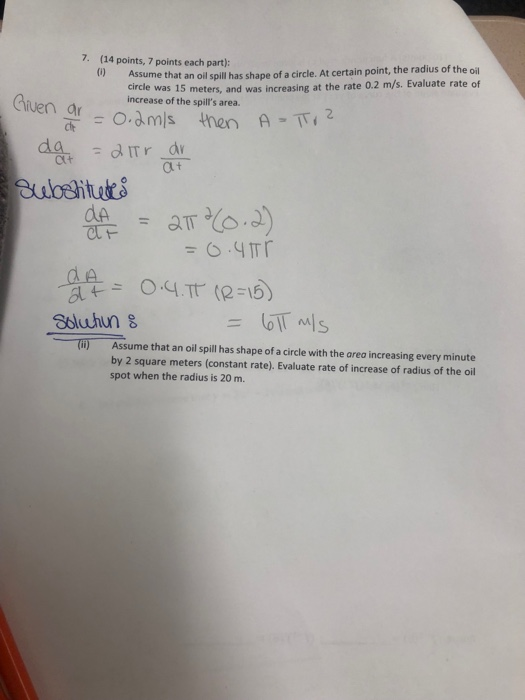 7. (14 points, 7 points each part):
(i) Assume that an oil spill has shape of a circle. At certain point, the radius of the oil
circle was 15 meters, and was increasing at the rate 0.2 m/s. Evaluate rate of
increase of the spill's area.
Given dr/dt = 0.2m/s then A = πr²
da/dt = 2πr dr/dt
Substitute:
dA/dt = 2π²(0.2)
= 0.4πr
dA/dt = 0.4.π (R=15)
Solution : = 6π m/s
(ii) Assume that an oil spill has shape of a circle with the area increasing every minute
by 2 square meters (constant rate). Evaluate rate of increase of radius of the oil
spot when the radius is 20 m.